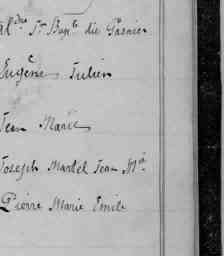 al.dre J.n Bap.te die Gasnier
Eugène Julien
Jean Marie
Joseph Martel Jean M.a
Pierre Marie Emile